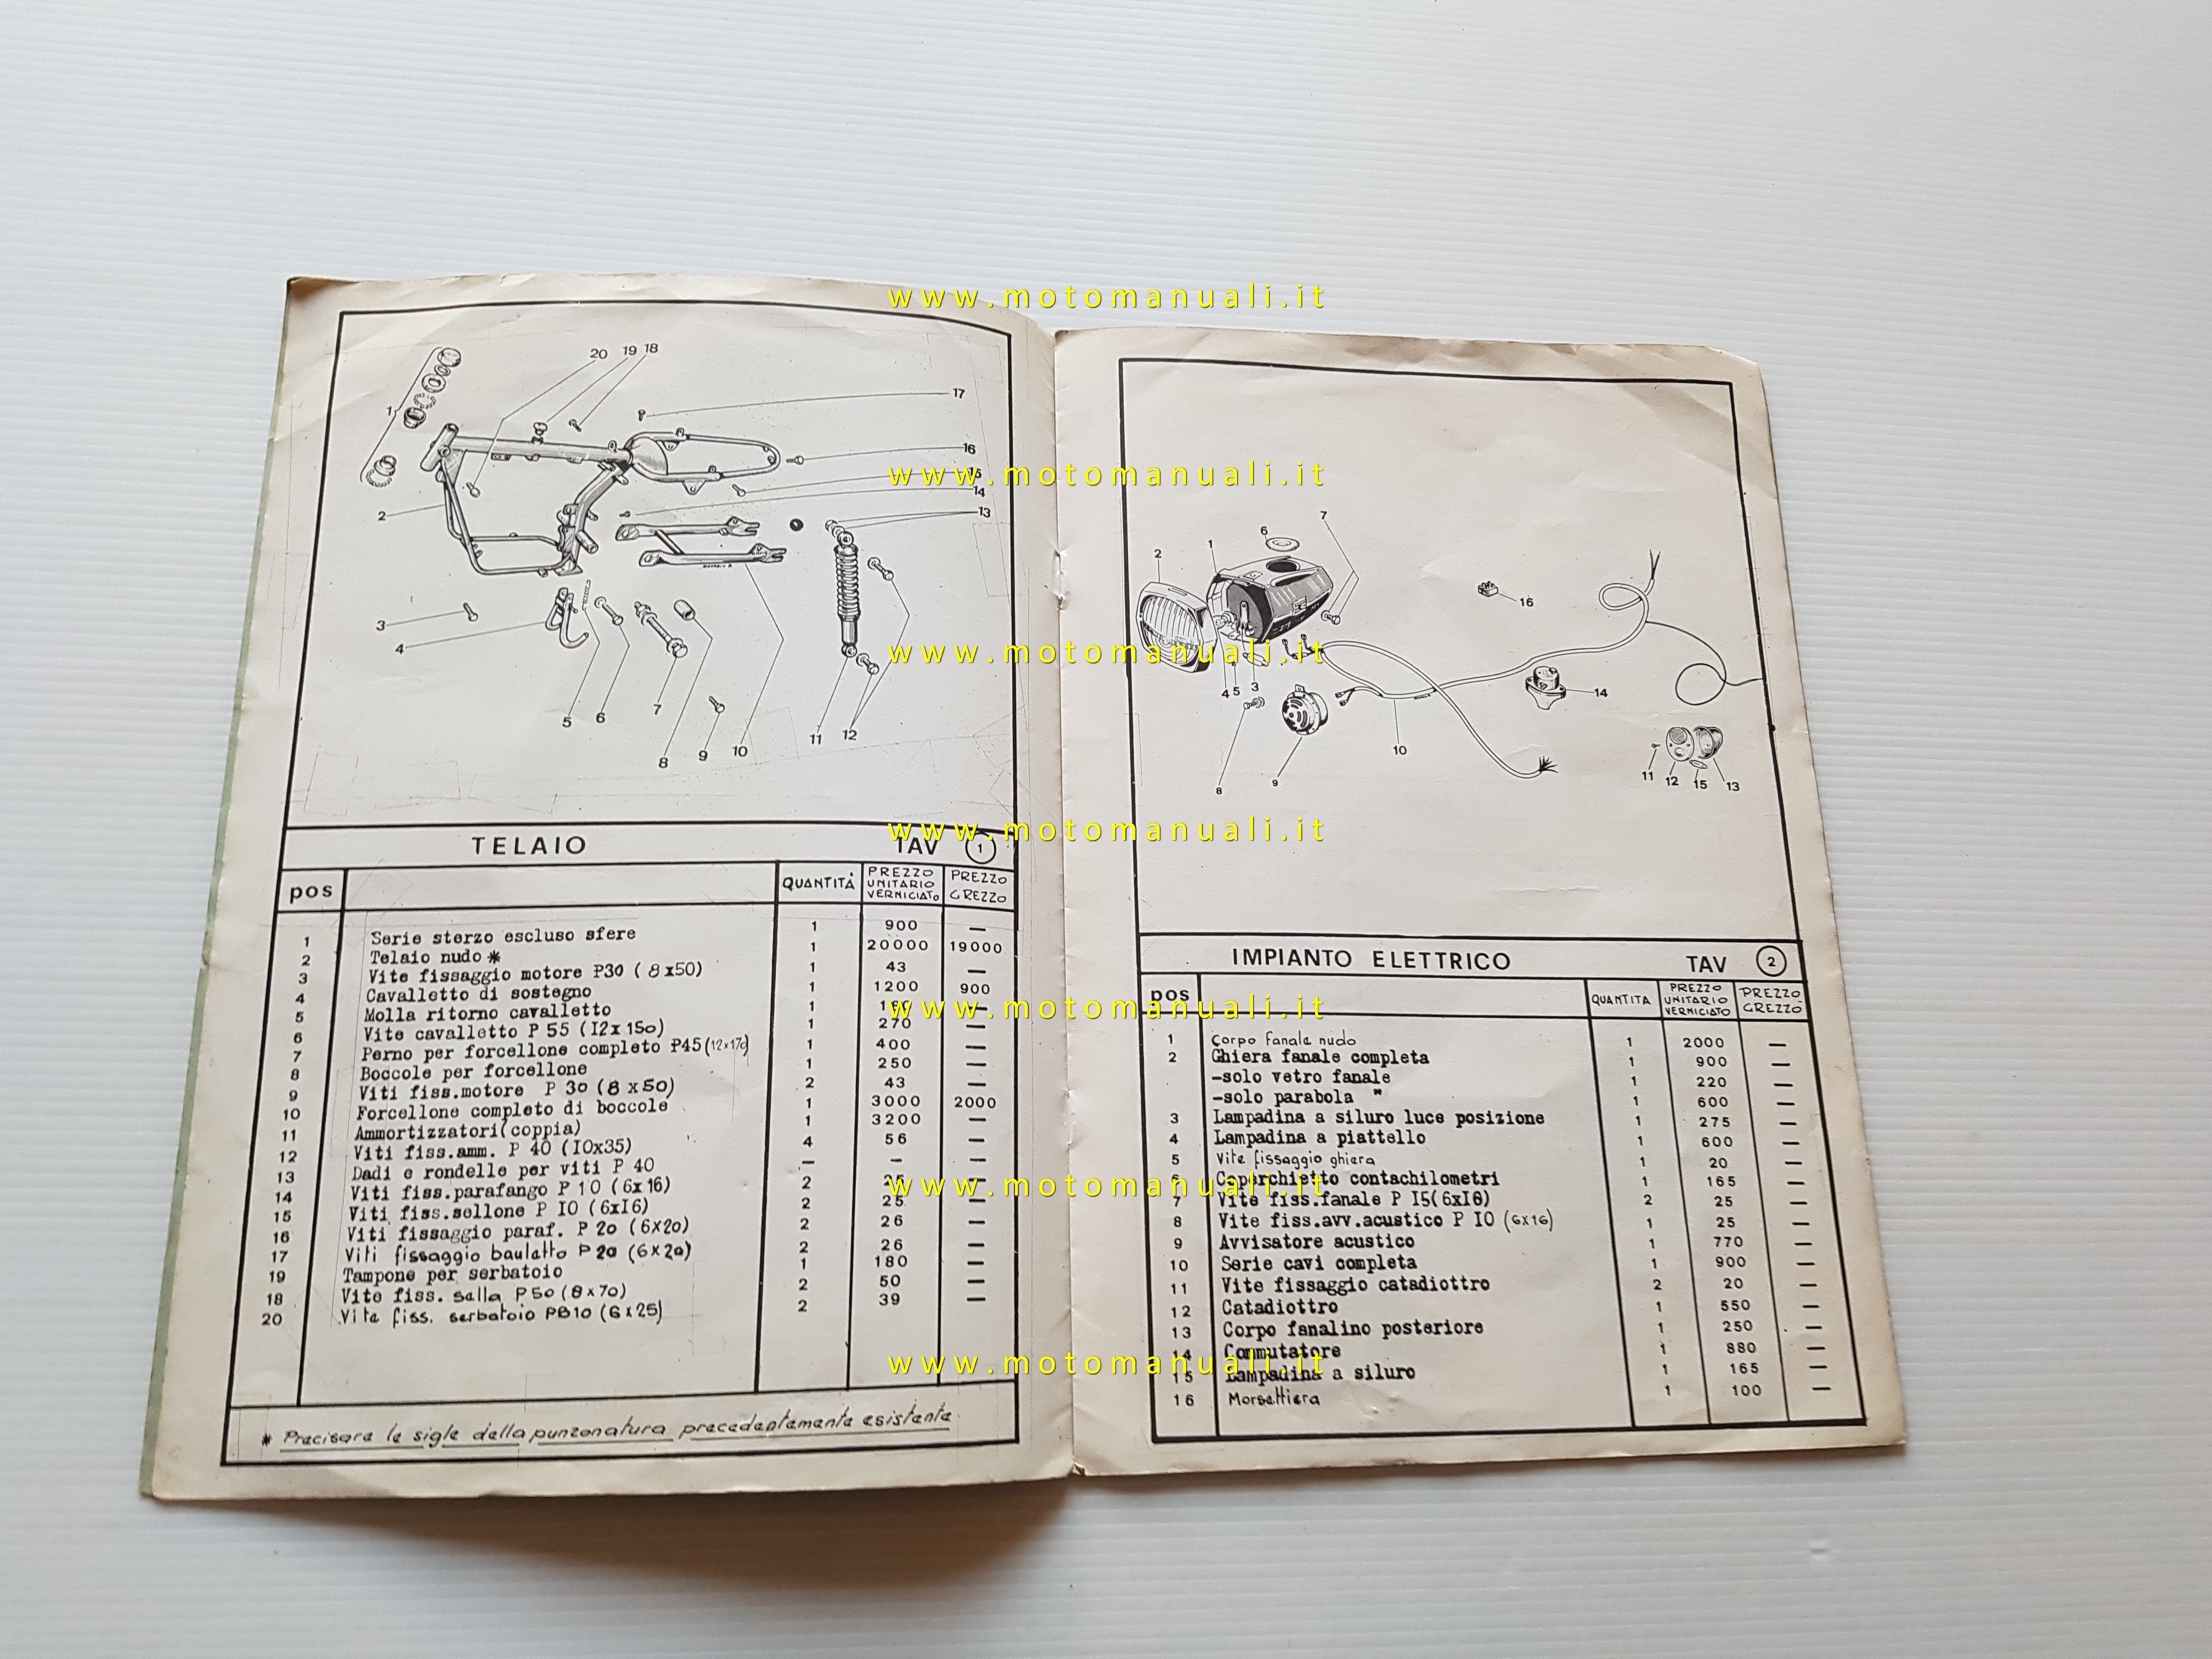 www.motomanuali.it
www.motomanuali.it
www.motomanuali.it
www.motomanuali.it
www.motomanuali.it
www.motomanuali.it
www.motomanuali.it
20 19 18
17
1
16
15
14
2
13
3
4
5 6 7 8 9 10 11 12
TELAIO TAV 1
pos QUANTITÀ PREZZO UNITARIO VERNICIATO PREZZO GREZZO
1 Serie sterzo escluso sfere 1 900 —
2 Telaio nudo * 1 20000 19000
3 Vite fissaggio motore P30 (8x50) 1 43 —
4 Cavalletto di sostegno 1 1200 900
5 Molla ritorno cavalletto 1 —
6 Vite cavalletto P 55 (I2x150) 1 270 —
7 Perno per forcellone completo P45 (12x170) 1 400 —
8 Boccole per forcellone 1 250 —
9 Viti fiss.motore P 30 (8x50) 2 43 —
10 Forcellone completo di boccole 1 3000 2000
11 Ammortizzatori(coppia) 1 3200 —
12 Viti fiss.amm. P 40 (I0x35) 4 56 —
13 Dadi e rondelle per viti P 40 — — —
14 Viti fiss.parafango P 10 (6x16) 2 25 —
15 Viti fiss.sellone P I0 (6xI6) 2 25 —
16 Viti fissaggio paraf. P 20 (6x20) 2 26 —
17 Viti fissaggio bauletto P 20 (6x20) 2 26 —
19 Tampone per serbatoio 1 180 —
18 Vite fiss. sella P50 (8x70) 2 50 —
20 Vite fiss. serbatoio PB10 (6x25) 2 39 —
* Precisare le sigle della punzonatura precedentemente esistente
7
6
2 1
16
4 5 3
14
8 9 10
11 12 15 13
IMPIANTO ELETTRICO TAV 2
pos QUANTITA PREZZO UNITARIO VERNICIATO PREZZO GREZZO
1 Corpo fanale nudo 1 2000 —
2 Ghiera fanale completa 1 900 —
-solo vetro fanale 1 220 —
-solo parabola " 1 600 —
3 Lampadina a siluro luce posizione 1 275 —
4 Lampadina a piattello 1 600 —
5 Vite fissaggio ghiera 1 20 —
6 Coperchietto contachilometri 1 165 —
7 Vite fiss.fanale P I5(6xI8) 2 25 —
8 Vite fiss.avv.acustico P I0 (6x16) 1 25 —
9 Avvisatore acustico 1 770 —
10 Serie cavi completa 1 900 —
11 Vite fissaggio catadiottro 2 20 —
12 Catadiottro 1 550 —
13 Corpo fanalino posteriore 1 250 —
14 Commutatore 1 880 —
15 Lampadina a siluro 1 165 —
16 Morsettiera 1 100 —